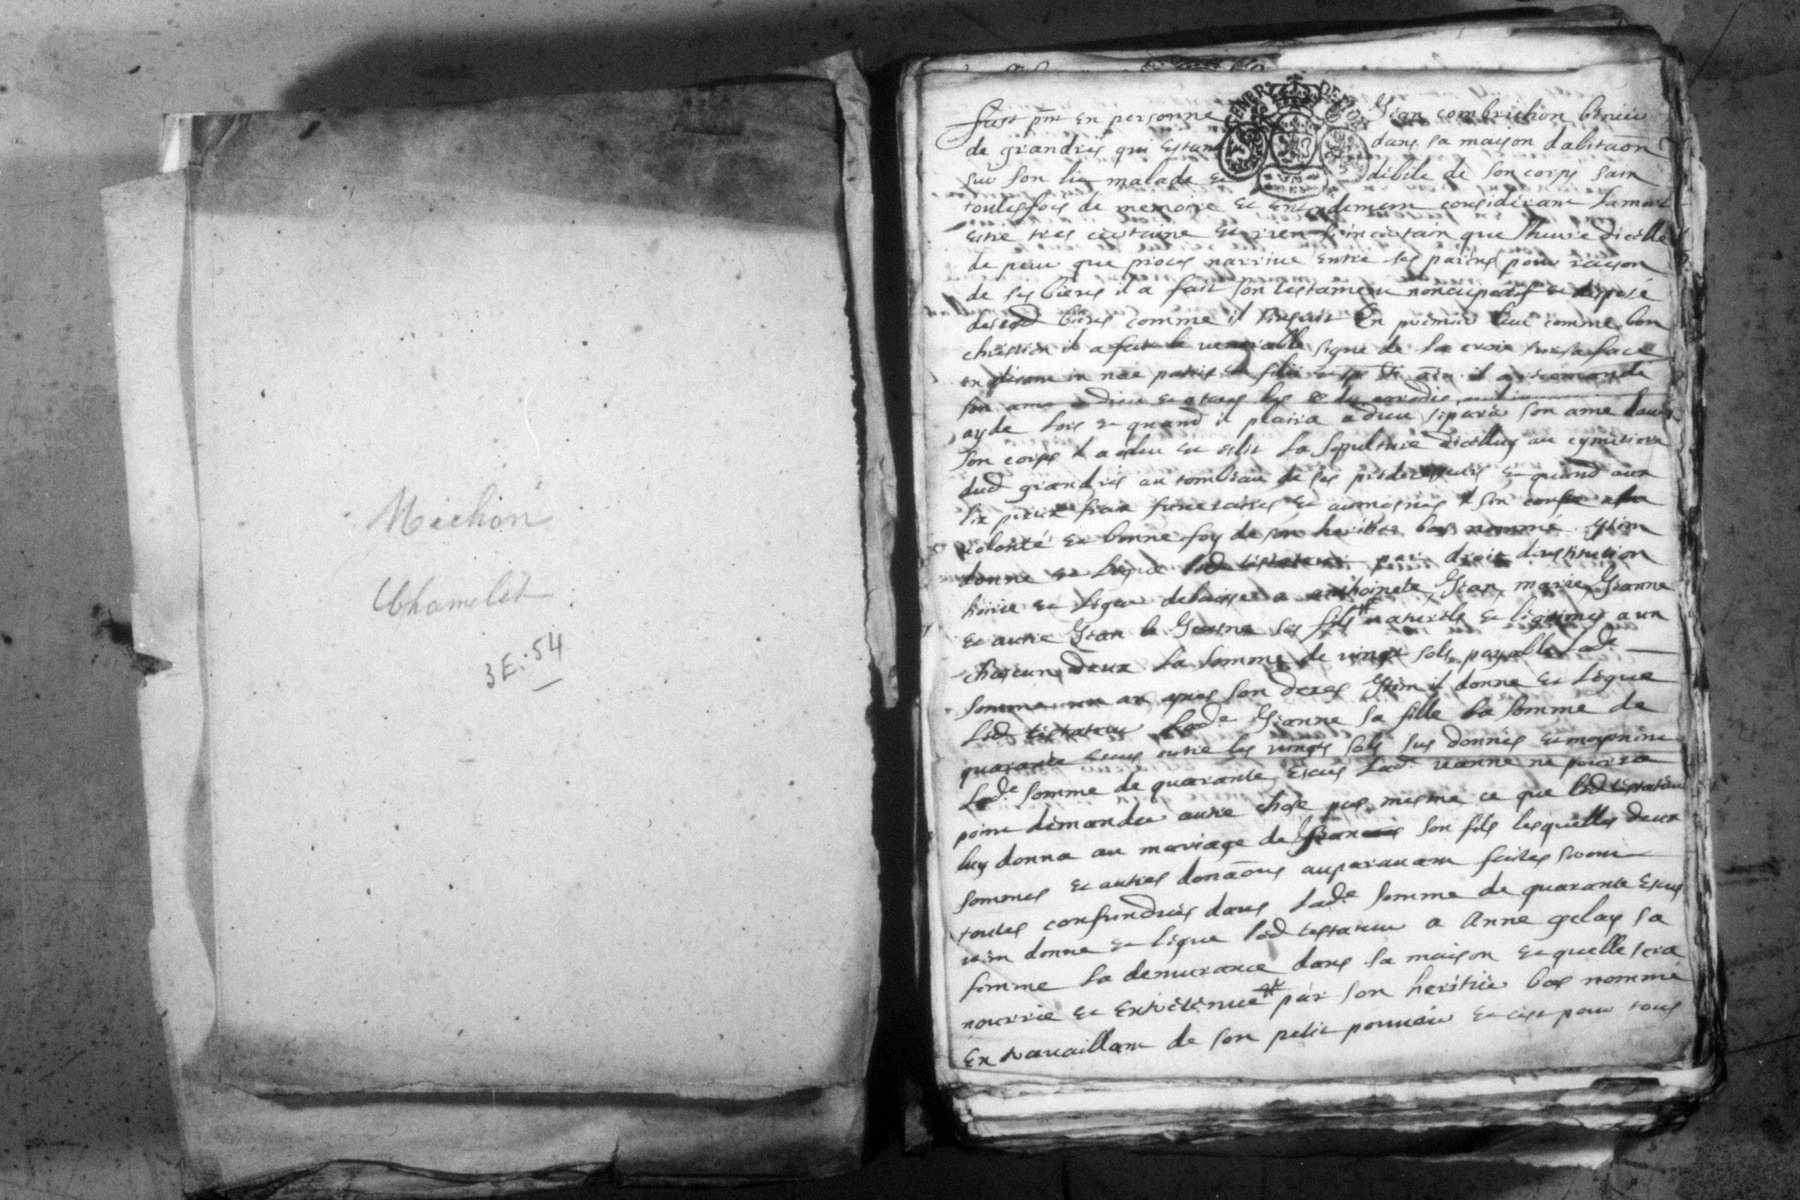 Michon
Chamelet
3E:54
fust pnt en personne Jean combrichon
de grandris qui estant dans sa maison dabitaon
sur son lit malade et debile de son corps sain
toutesfois de memoire et entendement considerant la mort
estre tres certaine et rien incertain que lheure dicelle
de peur que proces narrive entre ses parens pour raison
de ses biens il a fait son testament noncupatif et dispose
desd biens comme il sensuit En premier lieu comme bon
chrestien il a fait le venerable signe de la croix sur sa face
en disant in noe patris et filii et il a recomande
son ame a dieu et a tous les du paradis
ayde lors et quand il plaira a dieu separer son ame davec
son corps il a eslu et eslit la sepulture dicelluy au cymetiere
dud grandris au tombeau de ses predecesseurs et quand aux
frais funeraires et aumosnes il son a la
volonté et bonne foy de son heritier bas nommé Item
donne et legue led testateur par droit dinstitution
et delaisse a anthoinete, Jean, marie, Jeanne
et autre Jean le Jeusne ses fils naturels et legitimes a un
chascun deux la somme de vingt sols payable lade
somme un an apres son deces Item il donne et legue
led testateur a lade Jeanne sa fille la somme de
quarante escus outre les vingt sols sus donnés et moyenant
lade somme de quarante escus lad. Jeanne ne pourra
point demander autre chose pas mesme ce que led testateur
luy donna au mariage de son fils lesquelles deux
sommes et autres donaons auparavant faites seront
toutes confundues dans lade somme de quarante escus
item donne et legue led testateur a Anne sa
femme la demurance dans sa maison et quelle sera
nourrie et entretenue par son heritier bas nommé
En travaillant de son petit pouvoir et cest pour tous